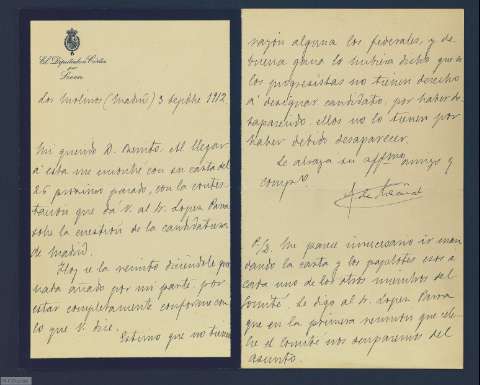 El Diputado a Cortes
por
Lucena
Los Molinos (Madrid) 3 Sepbre 1912
Mi querido D. Benito. Al llegar
a esta me encontre con su carta del
26 proximo pasado, con la contes-
tacion que dá V. al Sr. Lopez Parra
sobre la cuestion de la candidatura
de Madrid.
Hoy se la remito diciendole que
nada añado por mi parte, por
estar completamente conforme con
lo que V. dice.
Estimo que no tienen
razón alguna los federales, y de
buena gana lo hubiera dicho que si
los progresistas no tienen derecho
a designar candidato, por haber de-
saparecido, ellos no lo tienen por
haber debido desaparecer.
Le abraza su affmo amigo y
comp.º
P.D. Me parece innecesario ir man-
dando la carta y los papelotes esos a
cada uno de los otros miembros del
Comité. Le digo al Sr. Lopez Parra
que en la primera reunion que cele-
bre el Comité nos ocuparemos del
asunto.